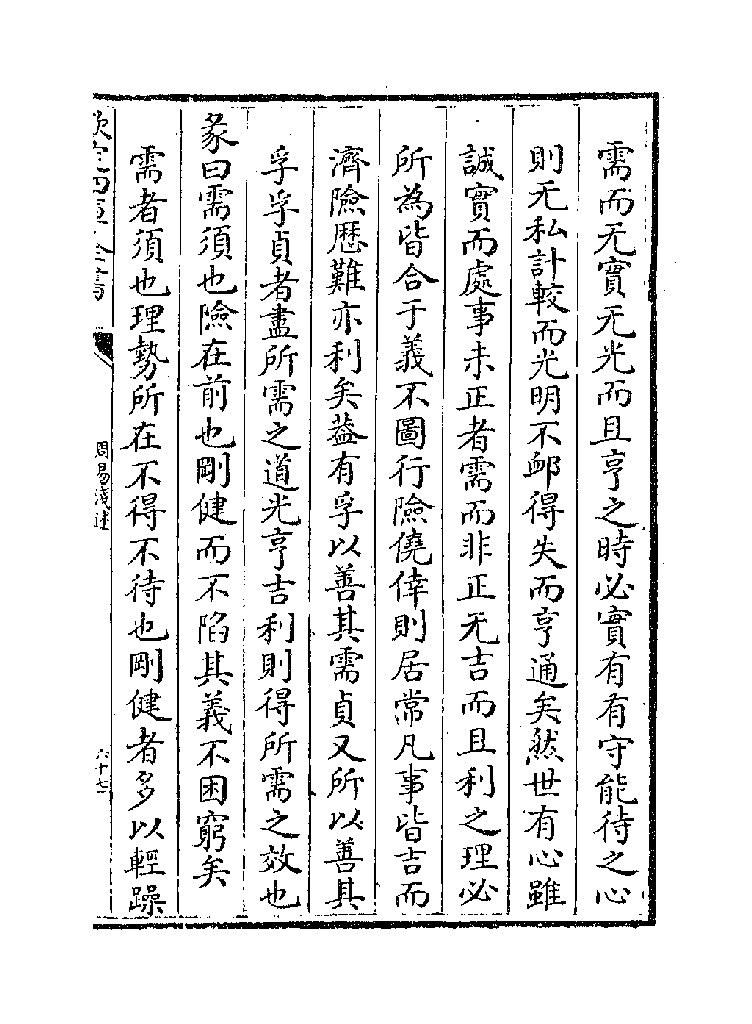 需而无實无光而且亨之時必實有有守能待之心
則无私計較而光明不䘏得失而亨通矣然世有心雖
誠實而處事未正者需而非正无吉而且利之理必
所為皆合于義不圖行險僥倖則居常凡事皆吉而
濟險歴難亦利矣葢有孚以善其需貞又所以善其
孚孚貞者盡所需之道光亨吉利則得所需之效也
彖曰需須也險在前也剛健而不陷其義不困窮矣
需者須也理勢所在不得不待也剛健者多以輕躁
欽定四庫全書
周易淺述
六十七